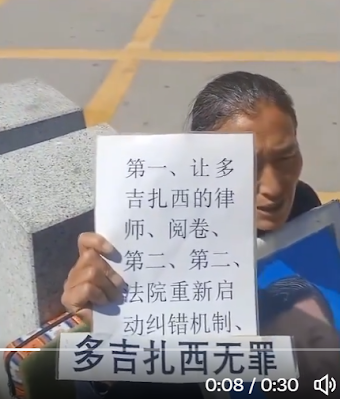 第一、让多
吉扎西的律
师、阅卷、
第二、第二、
法院重新启
动纠错机制、
多吉扎西无罪
0:08 / 0:30